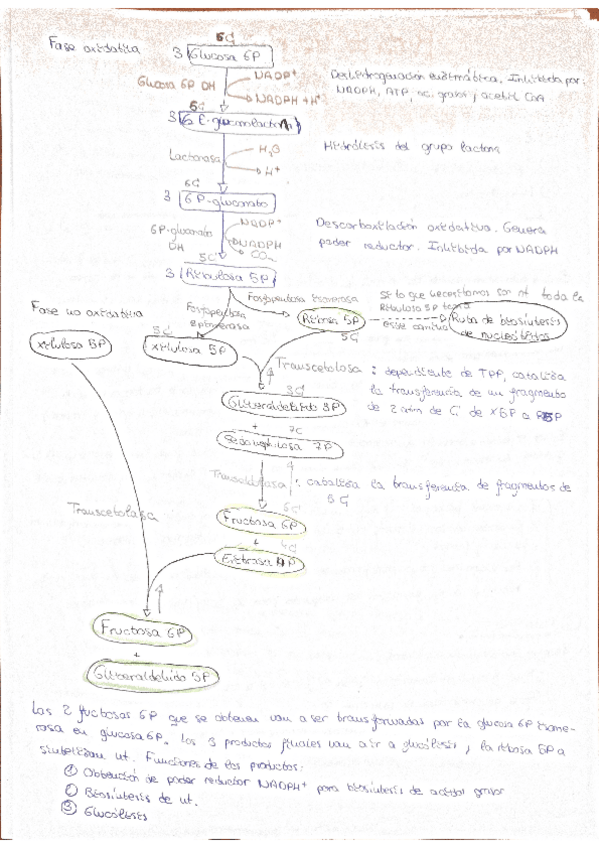 6C
Fase oxidativa
3 Glucosa 6P
Glucosa 6P DH
NADP⁺
NADPH + H⁺
Deshidrogenación enzimática. Inhibida por:
NADPH, ATP, ac. grasos y acetil CoA
6C
3 6 P-gluconolactona
Lactonasa
H₂O
H⁺
Hidrólisis del grupo lactona
6C
3 6 P-gluconato
6P-gluconato
DH
NADP⁺
NADPH
CO₂
Descarboxilación oxidativa. Genera
poder reductor. Inhibida por NADPH
5C
3 Ribulosa 5P
Fosfopentosa isomerasa
Fosfopentosa
Epimerasa
Ribosa 5P
5C
Si lo que necesitamos son nt toda la
Ribulosa 5P
ese camino
Ruta de biosíntesis
de nucleótidos
Fase no oxidativa
xilulosa 5P
5C
xilulosa 5P
Transcetolasa : dependiente de TPP, cataliza
la transferencia de un fragmento
de 2 atm de C de X5P a R5P
3C
Gliceraldehido 3P
+
7C
Sedoheptulosa 7P
Transaldolasa : cataliza la transferencia de fragmentos de
3C
6C
Fructosa 6P
+
4C
Eritrosa 4P
Transcetolasa
Fructosa 6P
+
Gliceraldehido 3P
Las 2 fructosas 6P que se obtienen van a ser transformadas por la glucosa 6P isome-
rasa en glucosa 6P. Los 3 productos finales van a ir a glucólisis y la ribosa 5P a
sintetizar nt. Funciones de los productos:
① Obtención de poder reductor NADPH⁺ para biosíntesis de ácidos grasos
② Biosíntesis de nt.
③ Glucólisis